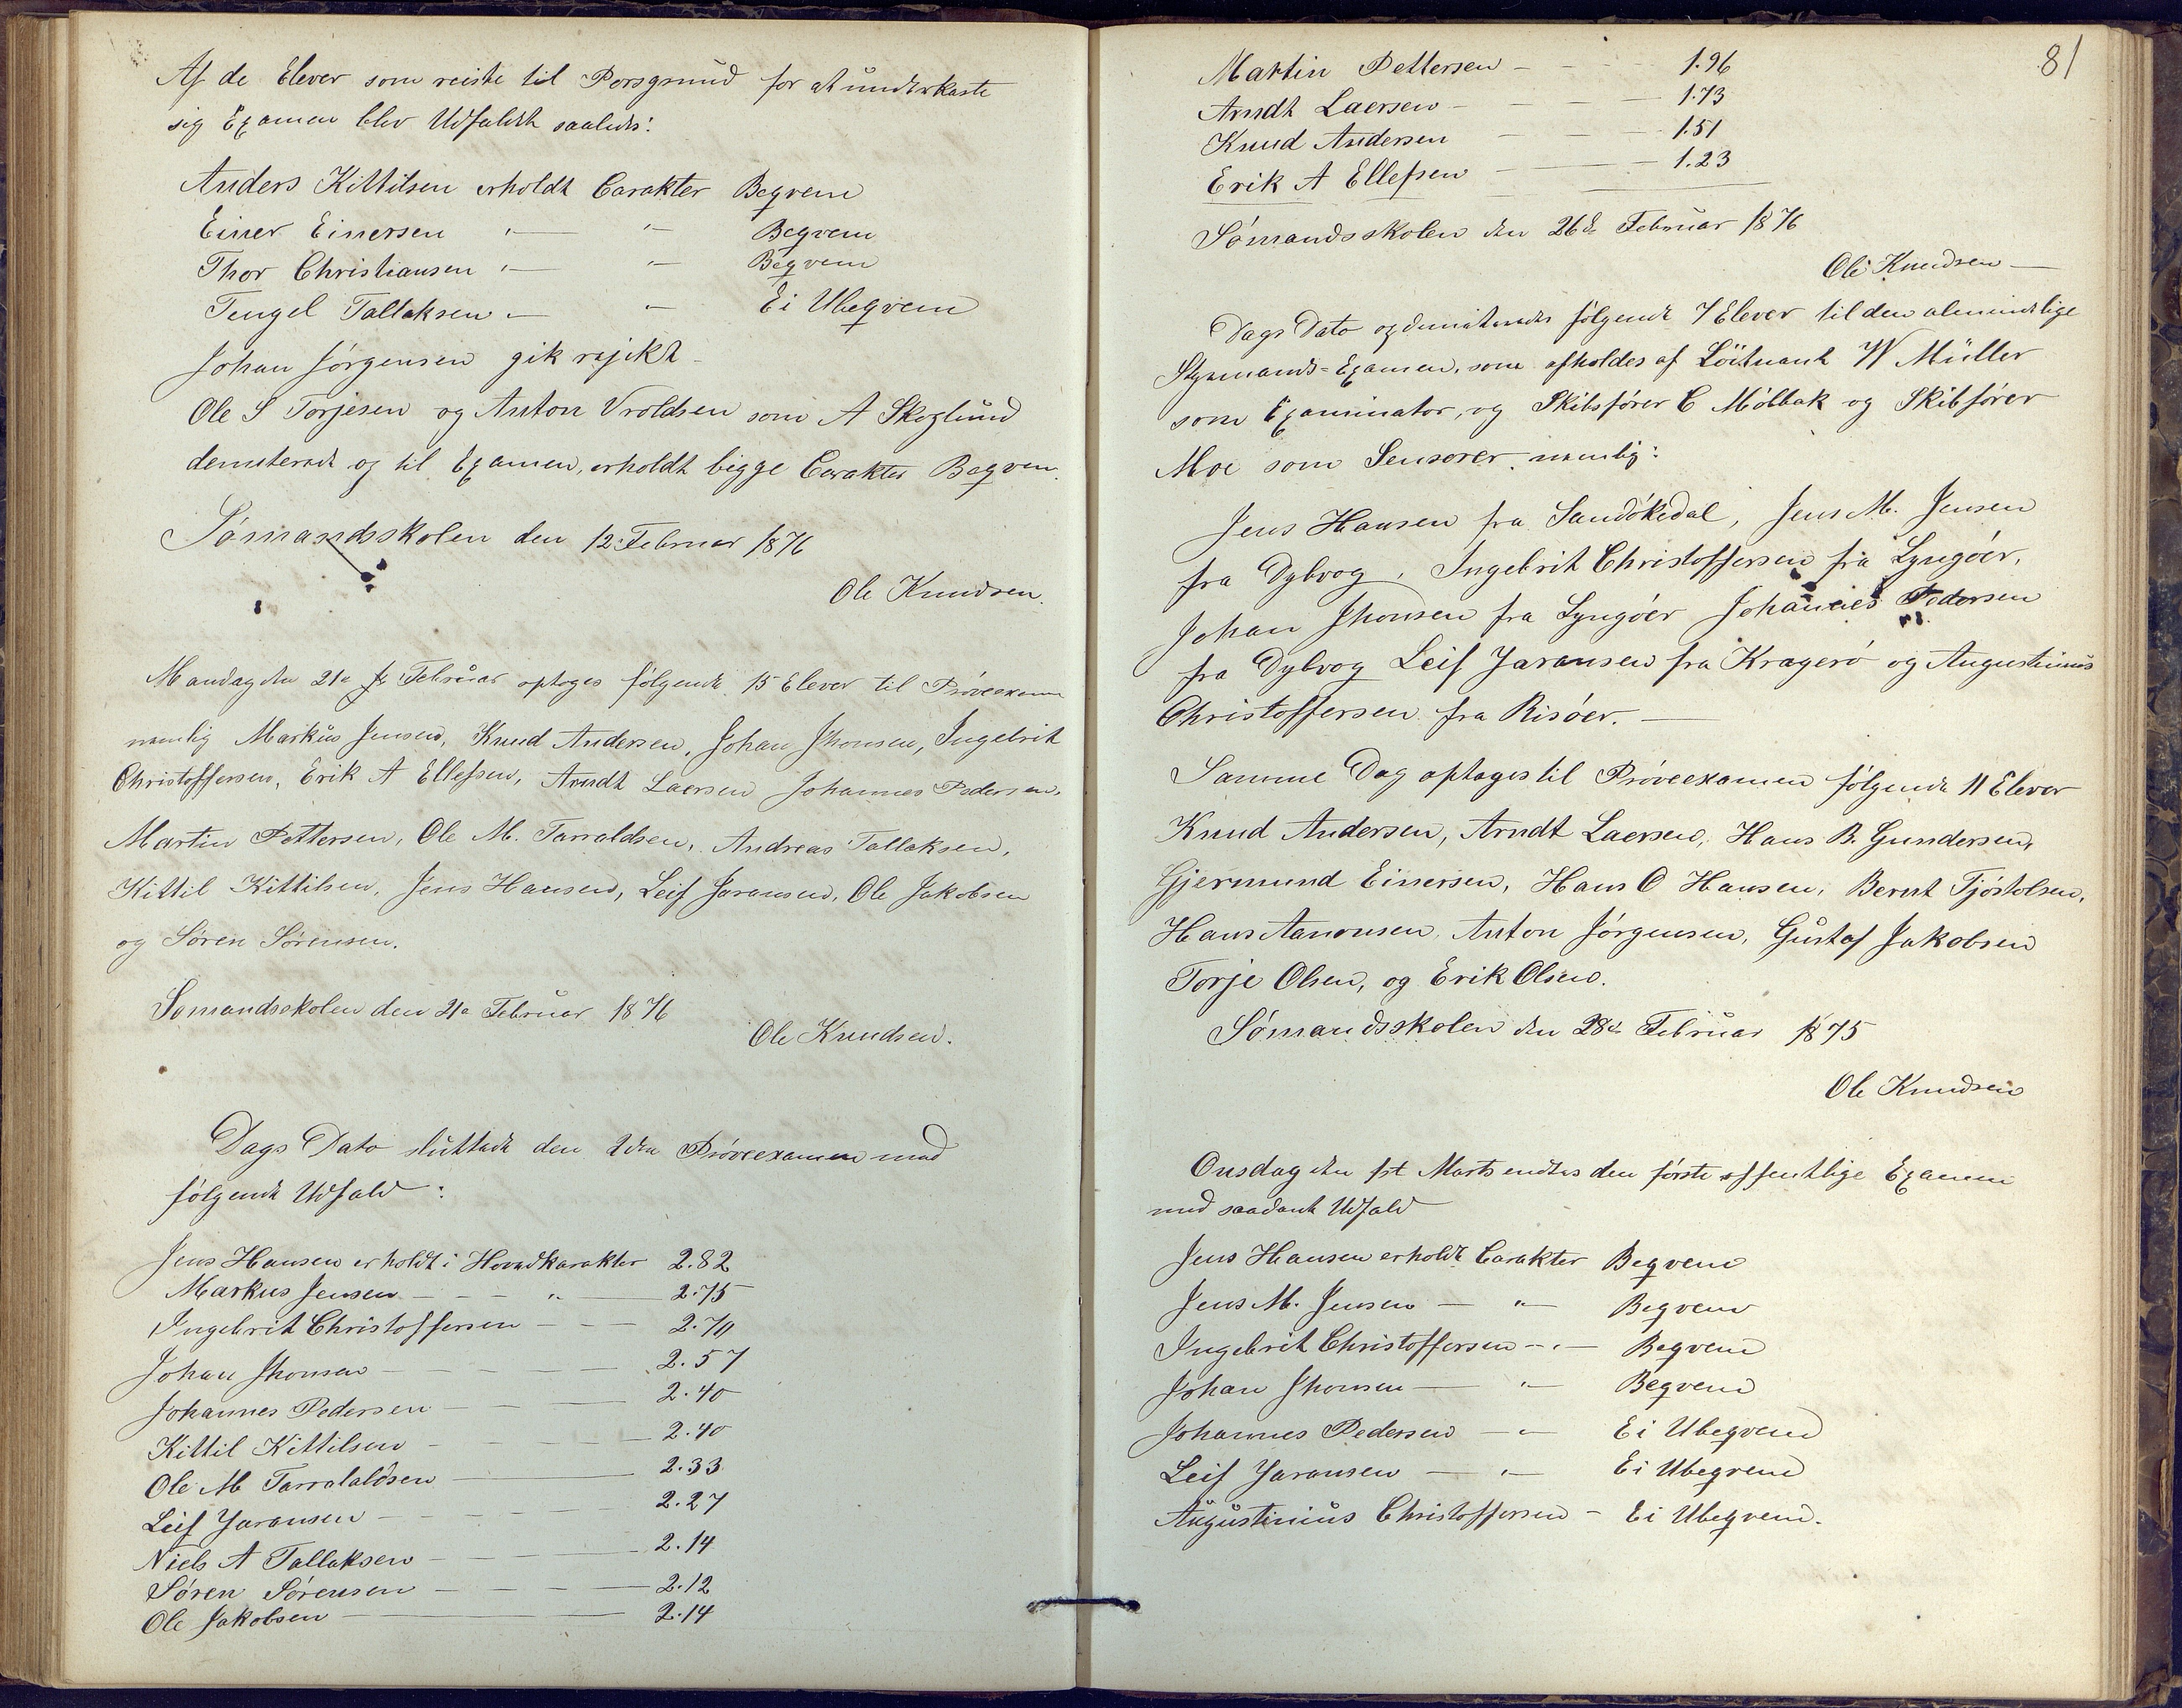 Af de Elever som reiste til Porsgrund for at underkaste
sig Examen blev Udfaldet saaledes:
Anders Kittilsen erholdt Carakter Beqvem
Einer Einersen " — " — Beqvem
Thor Christiansen " — " — Beqvem
Tengel Tallaksen " — " — Ei Ubeqvem
Johan Jörgensen gik rejikt
Ole S Torjesen og Anton Vroldsen som A Skoglund
demiterede og til Examen, erholdt bigge Carakter Beqvem.
Sömandsskolen den 12. Februar 1876
Ole Knudsen.
Mandag den 21de Februar optoges følgende 15 Elever til Pröveexamen
nemlig Markus Jensen, Knud Andersen, Johan Jhonsen, Ingebrit
Christoffersen, Erik A Ellefsen, Arndt Laersen Johannes Pedersen,
Martin Pettersen, Ole M. Tarraldsen, Andreas Tallaksen,
Kittil Kittilsen, Jens Hansen, Leif Jaransen, Ole Jakobsen
og Sören Sörensen.
Somandsskolen den 21de Februar 1876
Ole Knudsen.
Dags Dato sluttede den 2den Pröveexamen med
følgende Udfald:
Jens Hansen erholdt i Hovedkarakter 2.82
Markus Jensen — — — " — 2.75
Ingebrit Christoffersen — — — 2.70
Johan Jhonsen — — — 2.57
Johannes Pedersen — — — 2.40
Kittil Kittilsen — — — 2.40
Ole M Tarralaldsen — — 2.33
Leif Jaransen — — — 2.27
Niels A Tallaksen — — — 2.14
Sören Sörensen — — — 2.12
Ole Jakobsen — — 2.14
81
Martin Pettersen — — 1.96
Arndt Laersen — — — 1.73
Knud Andersen — — — 1.51
Erik A Ellefsen — — 1.23
Sömandsskolen den 26de Februar 1876
Ole Knudsen —
Dags Dato og demiterede følgende 7 Elever til den almindelige
Styrmands-Examen, som afholdes af Löitnant W Müller
som Examinator, og Skibsförer C Möllbak og Skibförer
Moe som Sensorer, nemlig:
Jens Hansen fra Sandökedal, Jens M. Jensen
fra Dybvog, Ingebrit Christoffersen fra Lyngöer,
Johan Jhonsen fra Lyngöer Johannes Pedersen
fra Dybvog Leif Jaransen fra Kragerö og Augustinius
Christoffersen fra Risöer. —
Samme Dag optoges til Pröveexamen følgende 11 Elever
Knud Andersen, Arndt Laersen, Hans B. Gundersen,
Gjermund Einersen, Hans O Hansen, Bernt Tjöstolsen,
Hans Aanonsen, Anton Jörgensen, Gustaf Jakobsen
Torje Olsen, og Erik Olsen.
Sömandsskolen den 28de Februar 1875
Ole Knudsen
Onsdag den 1st Marts endtes den förste offentlige Examen
med saadant Udfald
Jens Hansen erholdt Carakter Beqvem
Jens M. Jensen — " — Beqvem
Ingebrit Christoffersen — " — Beqvem
Johan Jhonsen — " — Beqvem
Johannes Pedersen — " — Ei Ubeqvem
Leif Jaransen — " — Ei Ubeqvem
Augustinius Christoffersen — Ei Ubeqvem.